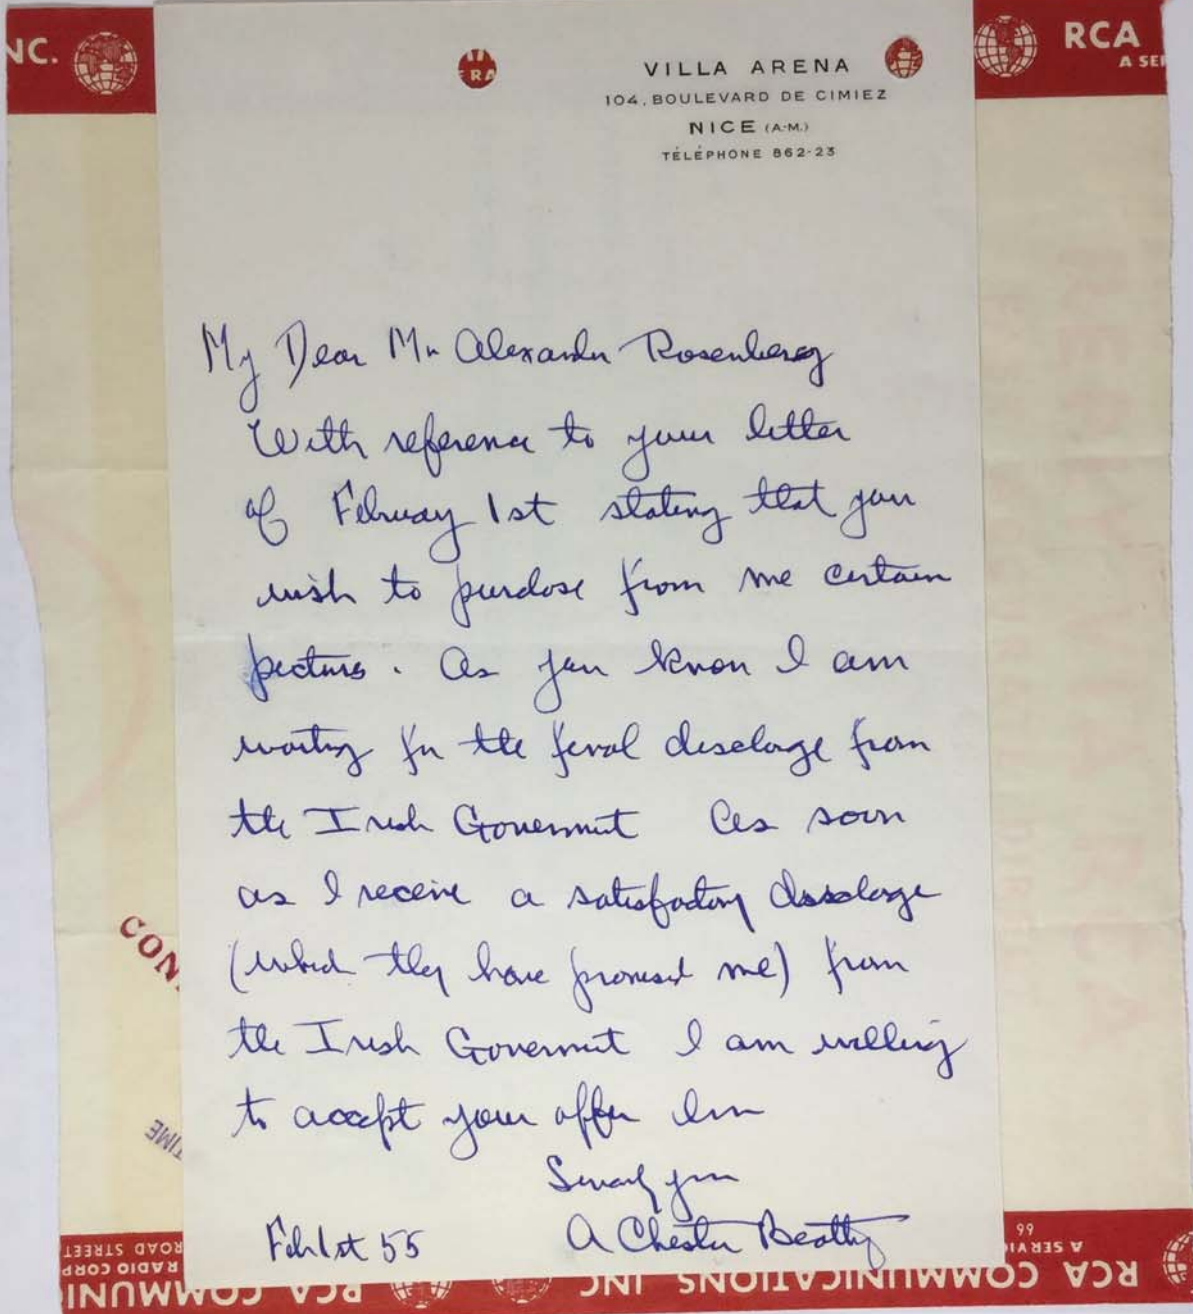 NC.
RCA
A SER
ERA
VILLA ARENA
104, BOULEVARD DE CIMIEZ
NICE (A.-M.)
TÉLÉPHONE 862-23
My Dear Mr Alexander Rosenberg
With reference to your letter
of February 1st stating that you
wish to purchase from me certain
pictures. As you know I am
waiting for the final discharge from
the Irish Government As soon
as I receive a satisfactory discharge
(which they have promised me) from
the Irish Government I am willing
to accept your offer I am
Sincerely yours
A Chester Beatty
Feb 1st 55
CON
TIME
66
A SERVIC
RCA COMMUNICATIONS INC
RCA COMMUNI
RADIO CORP
ROAD STREET